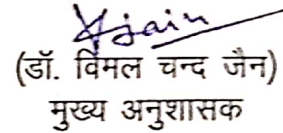 Vjain
(डॉ. विमल चन्द जैन)
मुख्य अनुशासक